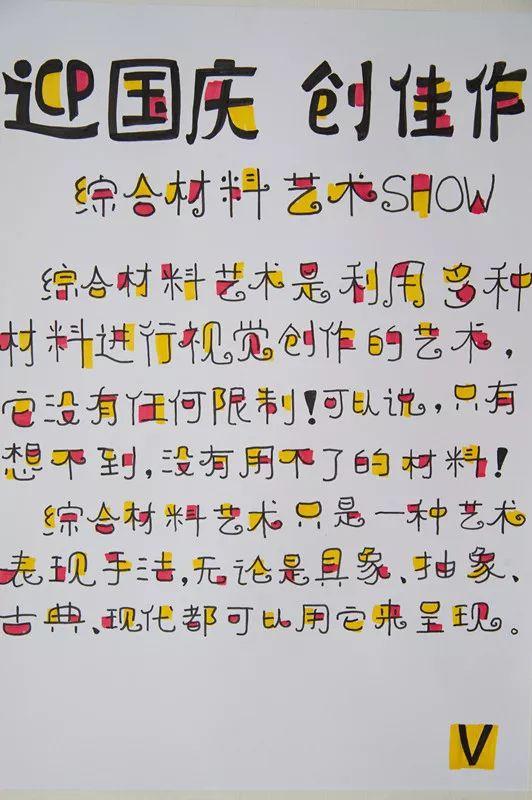 迎国庆 创佳作
综合材料艺术SHOW
综合材料艺术是利用多种
材料进行视觉创作的艺术，
它没有任何限制！可以说，只有
想不到，没有用不了的材料！
综合材料艺术只是一种艺术
表现手法，无论是具象、抽象、
古典、现代都可以用它来呈现。
V